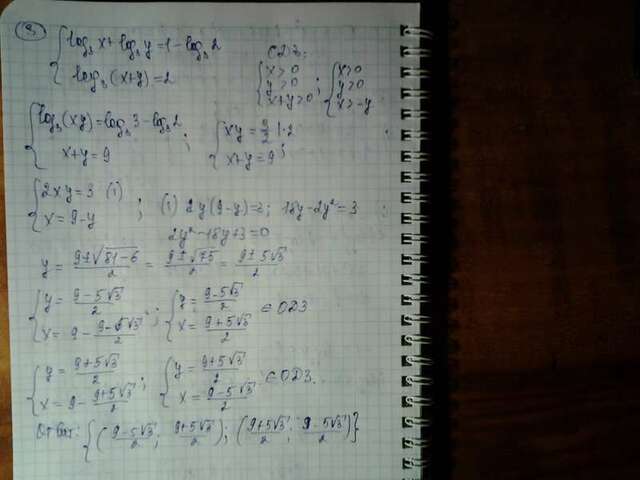 ③
{ log₃x + log₃y = 1 - log₃2
log₃(x+y) = 2
ОДЗ:
{ x>0
y>0
x+y>0 ; { x>0
y>0
x>-y
{ log₃(xy) = log₃3 - log₃2
x+y = 9 ; { xy = 3/2 |·2
x+y = 9 ;
{ 2xy = 3 (1)
x = 9-y ; (1) 2y(9-y)=3; 18y-2y² = 3
2y²-18y+3=0
y = (9±√(81-6))/2 = (9±√75)/2 = (9±5√3)/2
{ y = (9-5√3)/2
x = 9 - (9-5√3)/2 ; { y = (9-5√3)/2
x = (9+5√3)/2 ∈ ОДЗ
{ y = (9+5√3)/2
x = 9 - (9+5√3)/2 ; { y = (9+5√3)/2
x = (9-5√3)/2 ∈ ОДЗ.
Ответ: {((9-5√3)/2; (9+5√3)/2); ((9+5√3)/2; (9-5√3)/2)}